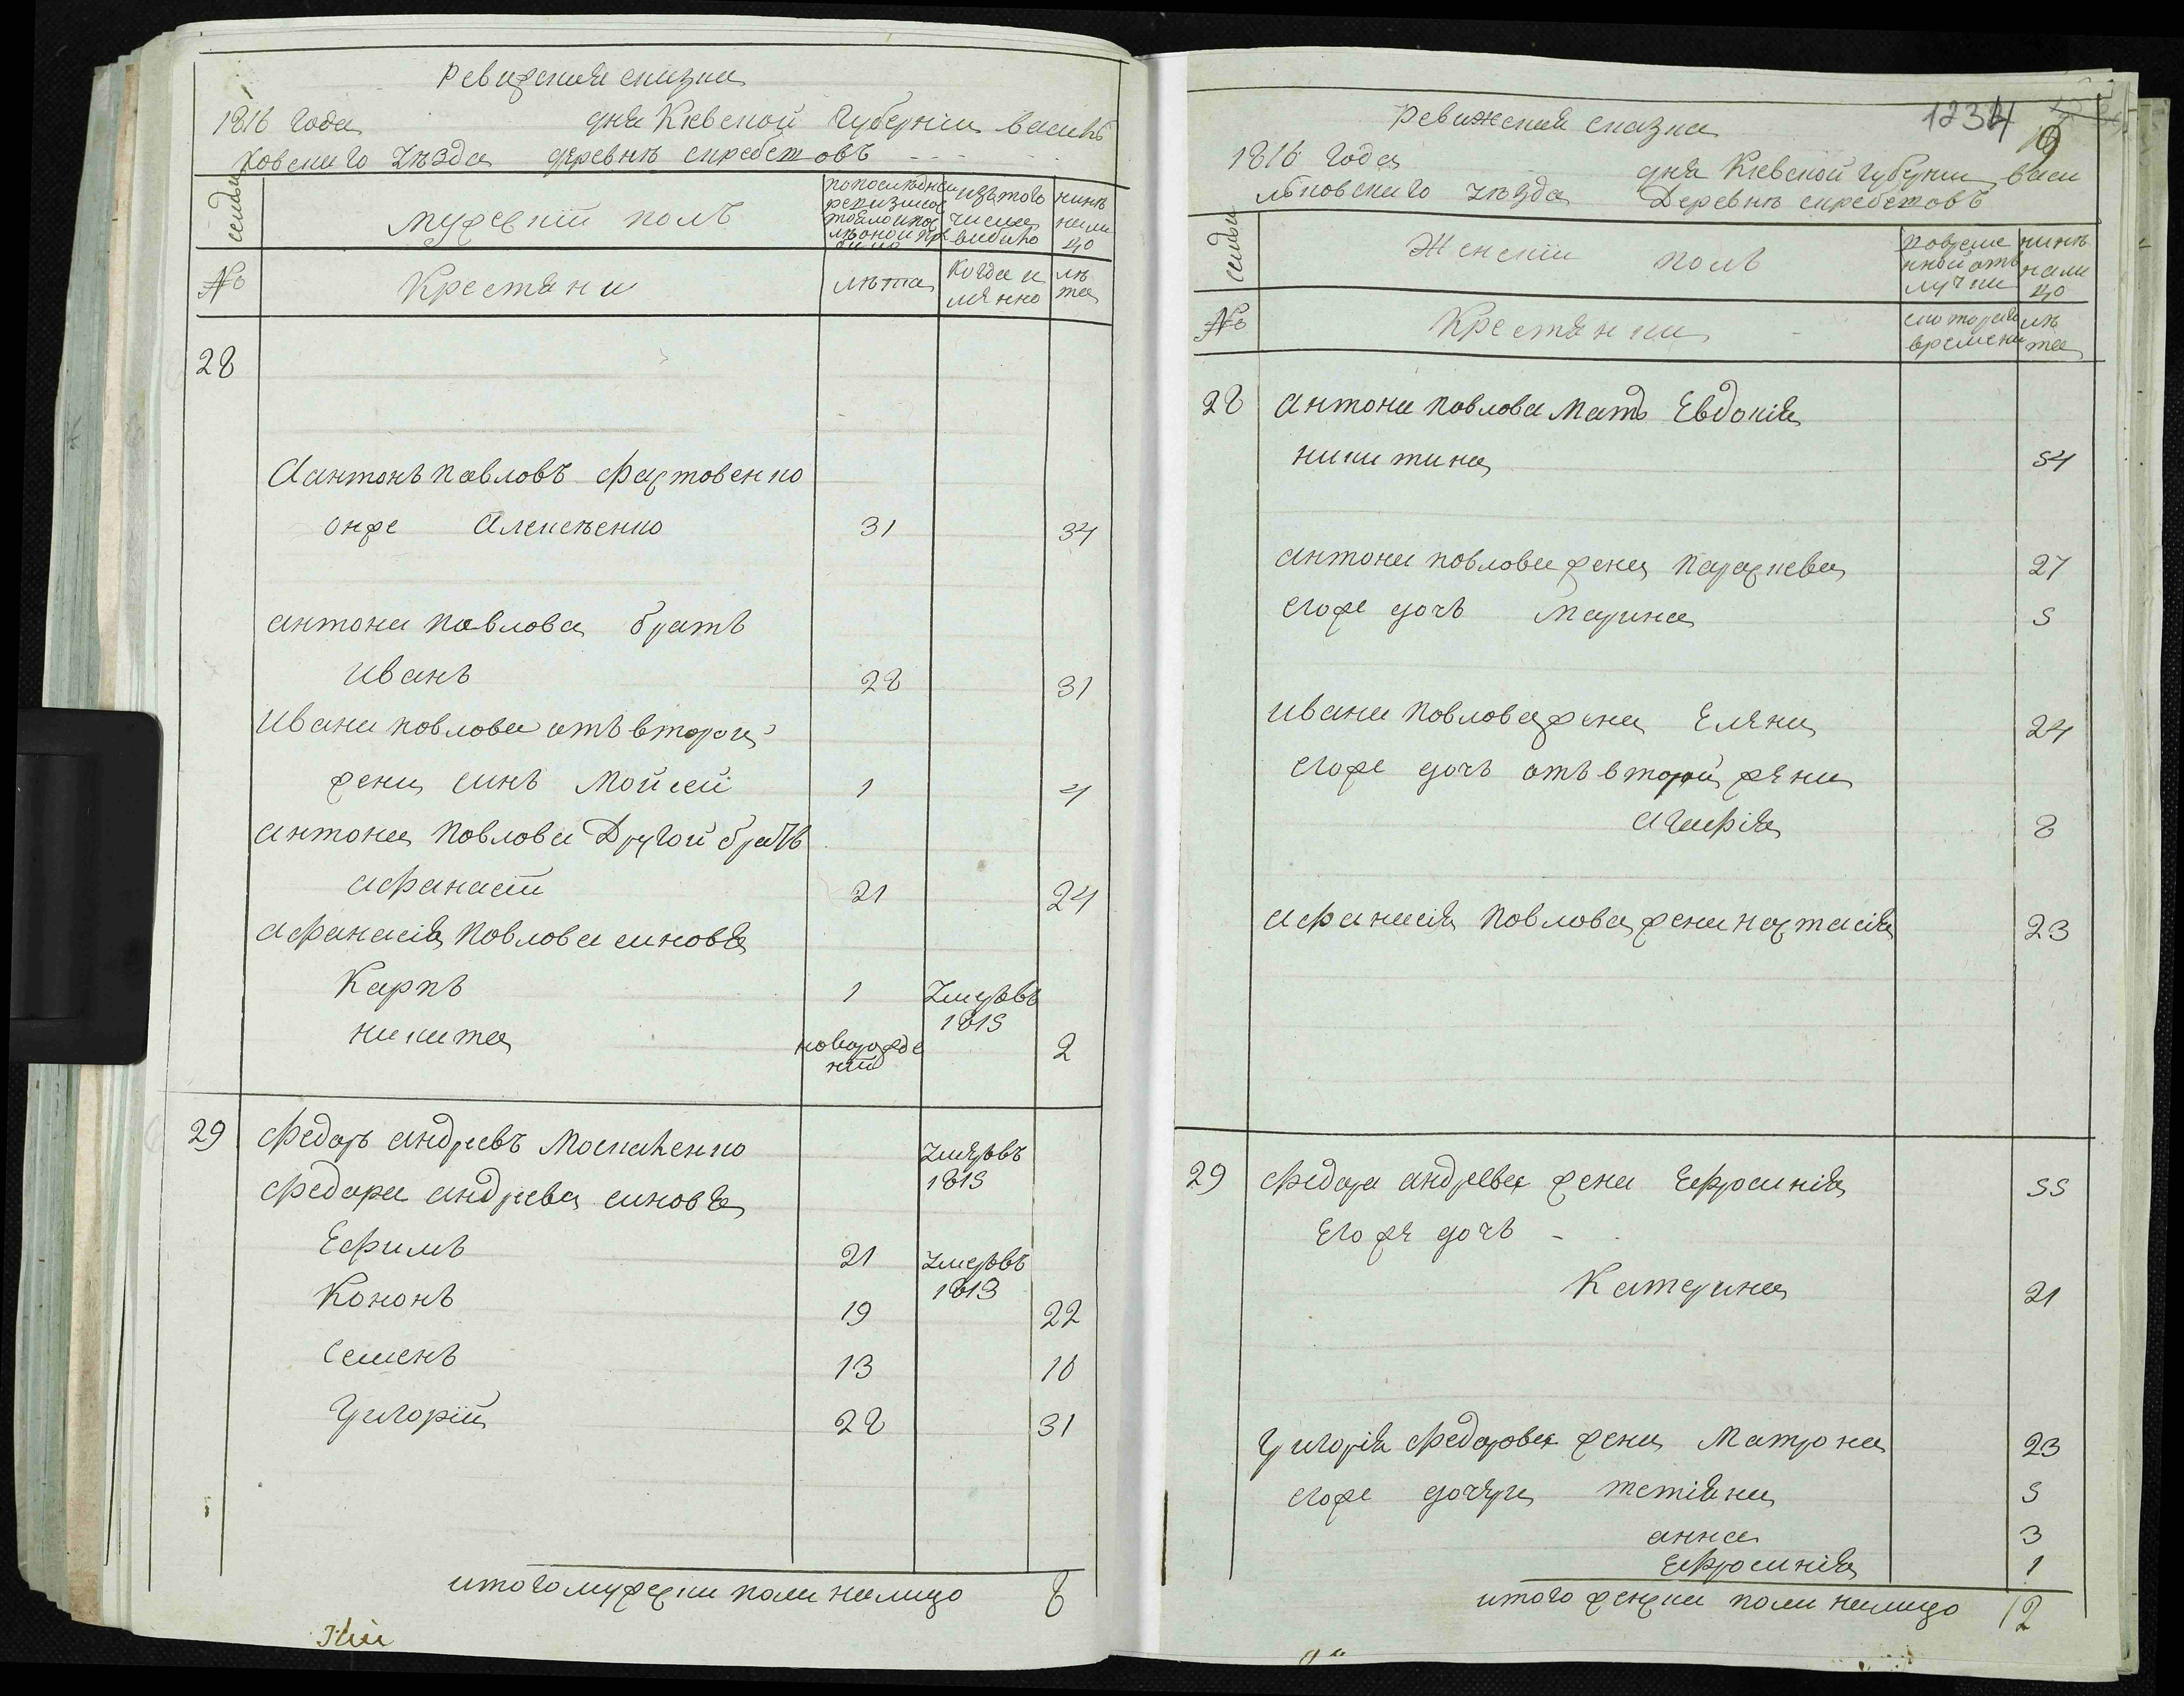 Ревизская сказка
1816 года дня Киевской Губернии василь
ковского уѣзда деревнѣ скребетовъ
семьи
мужескій полъ
нинѣ
нали
цо
изътого
числа
вибило
№
Крестяни
лѣта
Когда и
мянно
лѣ
та
28
Аантонъ павловъ фастовенко
онже Алексѣенко 31 34
антона павлова братъ
иванъ 28 31
ивана повлова отъ второй
жени синъ Мойсей 1 4
антона повлова Другой братъ
афанасій 21 24
афанасія повлова синовя
Карпъ 1 Умерьвъ
1815
никита новорожде
ний 2
29 федоръ андреевъ Москаленко Умерьвъ
1815
федора андреева синовя
Ефимъ 21 Умерьвъ
1813
Кононъ 19 22
Семенъ 13 16
Григорій 28 31
итого мужеска пола налицо 8
1234
Ревижская сказка
1816 года дня Киевской Губернии васи
льковского уѣзда Деревнѣ скребетовъ
семьи
Женскій полъ
повреме
нной отъ
лучки
нинѣ
нали
цо
№
Крестянки
скоторого
времени
лѣ
та
28 антона павлова мать Евдокія
никитина 54
антона повлова жена параскева 27
егоже дочь Марина 5
ивана повлова жена Еляна 24
егоже дочь отъ второй жени
агафія 8
афанасія повлова жена настасія 23
29 федора андреева жена Ефросинія 55
Егоже дочь -
Катерина 21
Григорія федорова жена Матрона 23
егоже дочери тетіяна 5
анна 3
Ефросинія 1
итого женска пола налицо 12